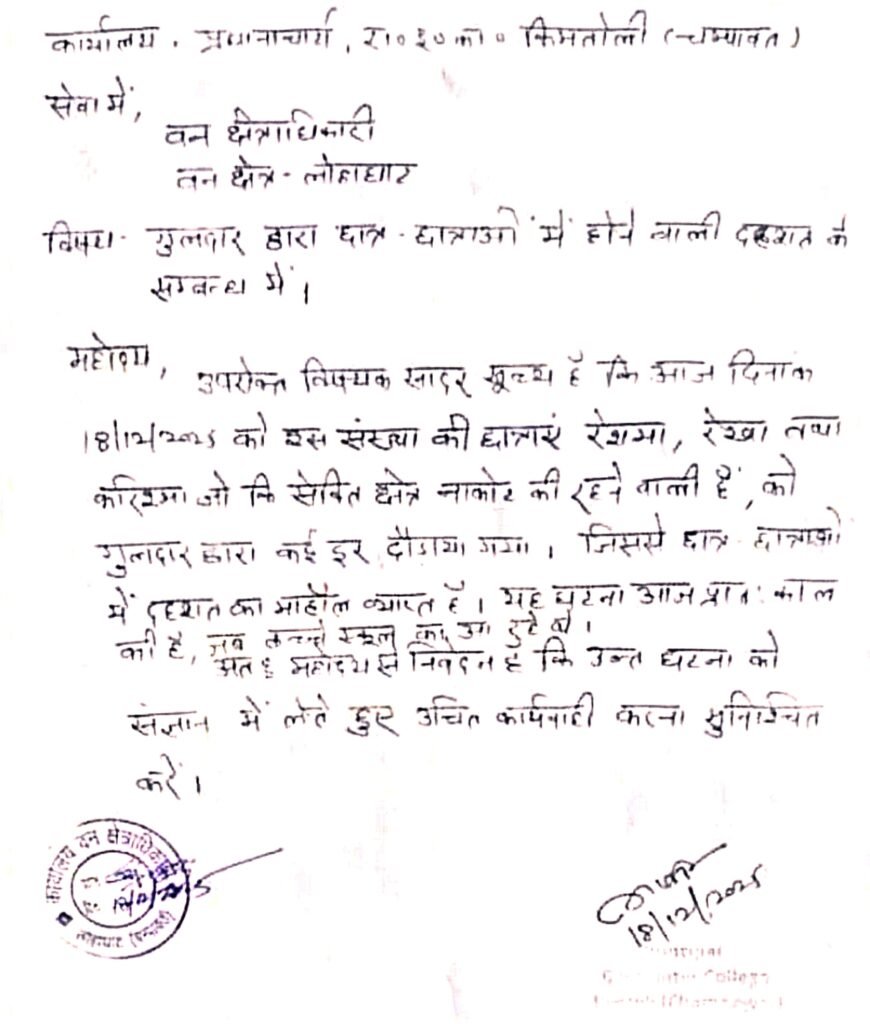 कार्यालय, प्रधानाचार्य, रा० इ० का० किमतोली (चम्पावत)
सेवा में,
वन क्षेत्राधिकारी
वन क्षेत्र - लोहाघाट
विषय - गुलदार द्वारा छात्र - छात्राओं में होने वाली दहशत के
सम्बन्ध में।
महोदय,
उपरोक्त विषयक सादर सूच्य है कि आज दिनांक
18/12/2025 को इस संस्था की छात्राएं रेशमा, रेखा तथा
करिश्मा जो कि सेवित क्षेत्र नाकोट की रहने वाली हैं, को
गुलदार द्वारा कई दूर दौडाया गया। जिससे छात्र - छात्राओं
में दहशत का माहौल व्याप्त है। यह घटना आज प्रातः काल
की है, जब बच्चे स्कूल आ रहे थे।
अतः महोदय से निवेदन है कि उक्त घटना को
संज्ञान में लेते हुए उचित कार्यवाही करना सुनिश्चित
करें।
कार्यालय वन क्षेत्राधिकारी
लोहाघाट (चम्पावत)
18/12/2025
Principal
College